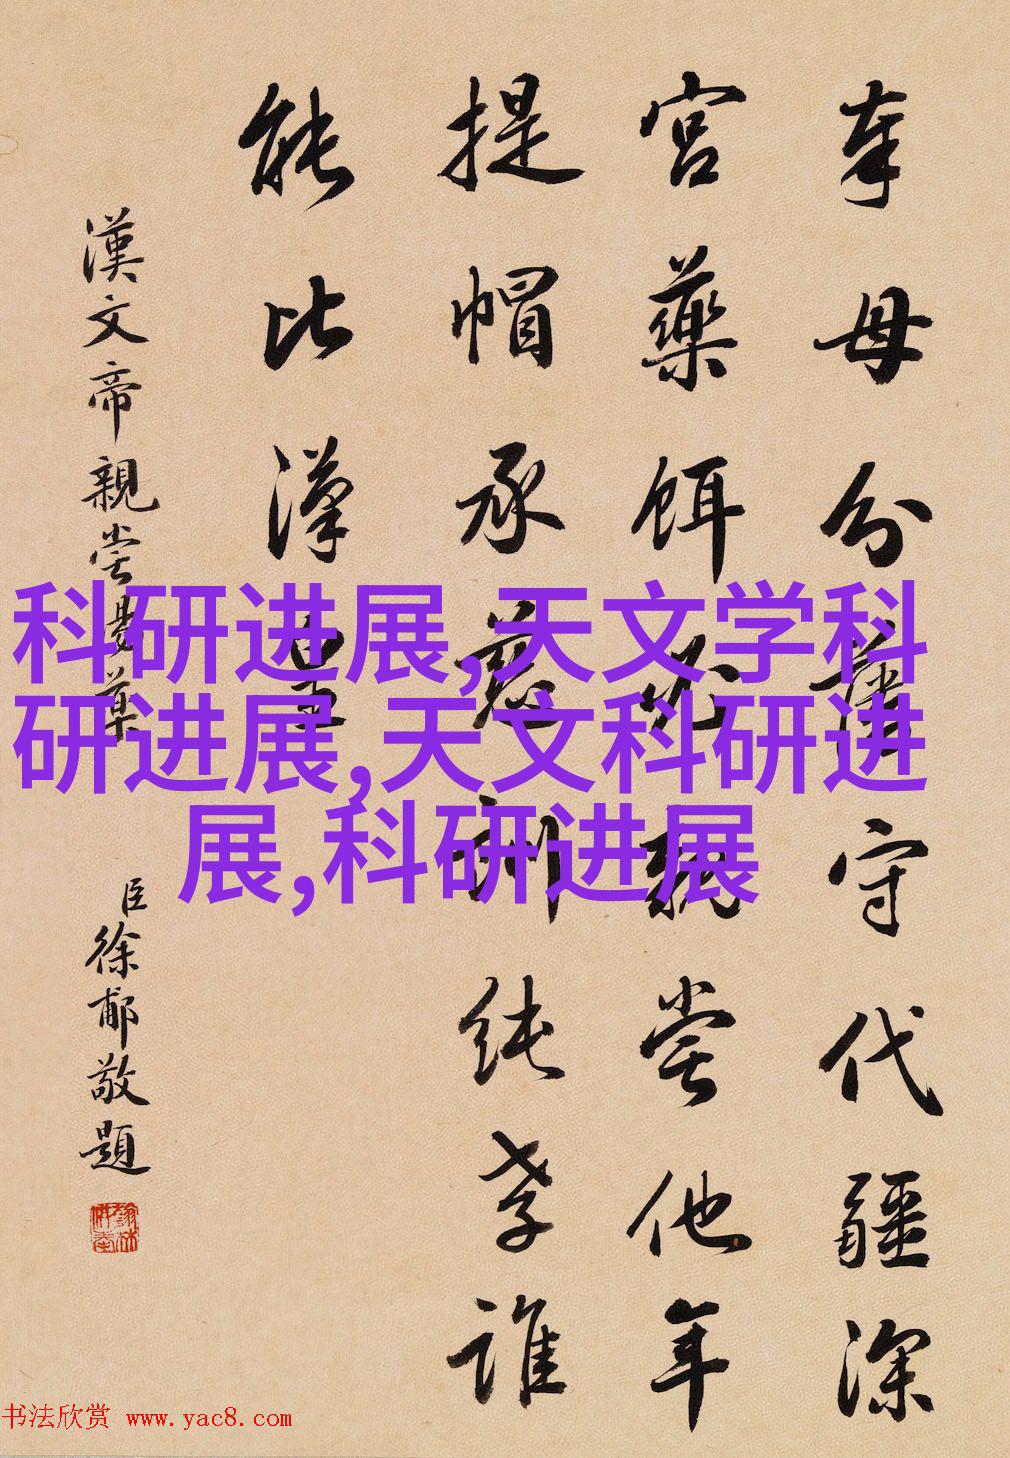 奉母分藩守代疆深
宮藥餌必親嘗他年
提帽承慈訓純孝誰
能比漢皇
漢文帝親嘗湯藥
臣徐郙敬題
科研进展,天文学科
研进展,天文科研进
展,科研进展
书法欣赏 www.yac8.com